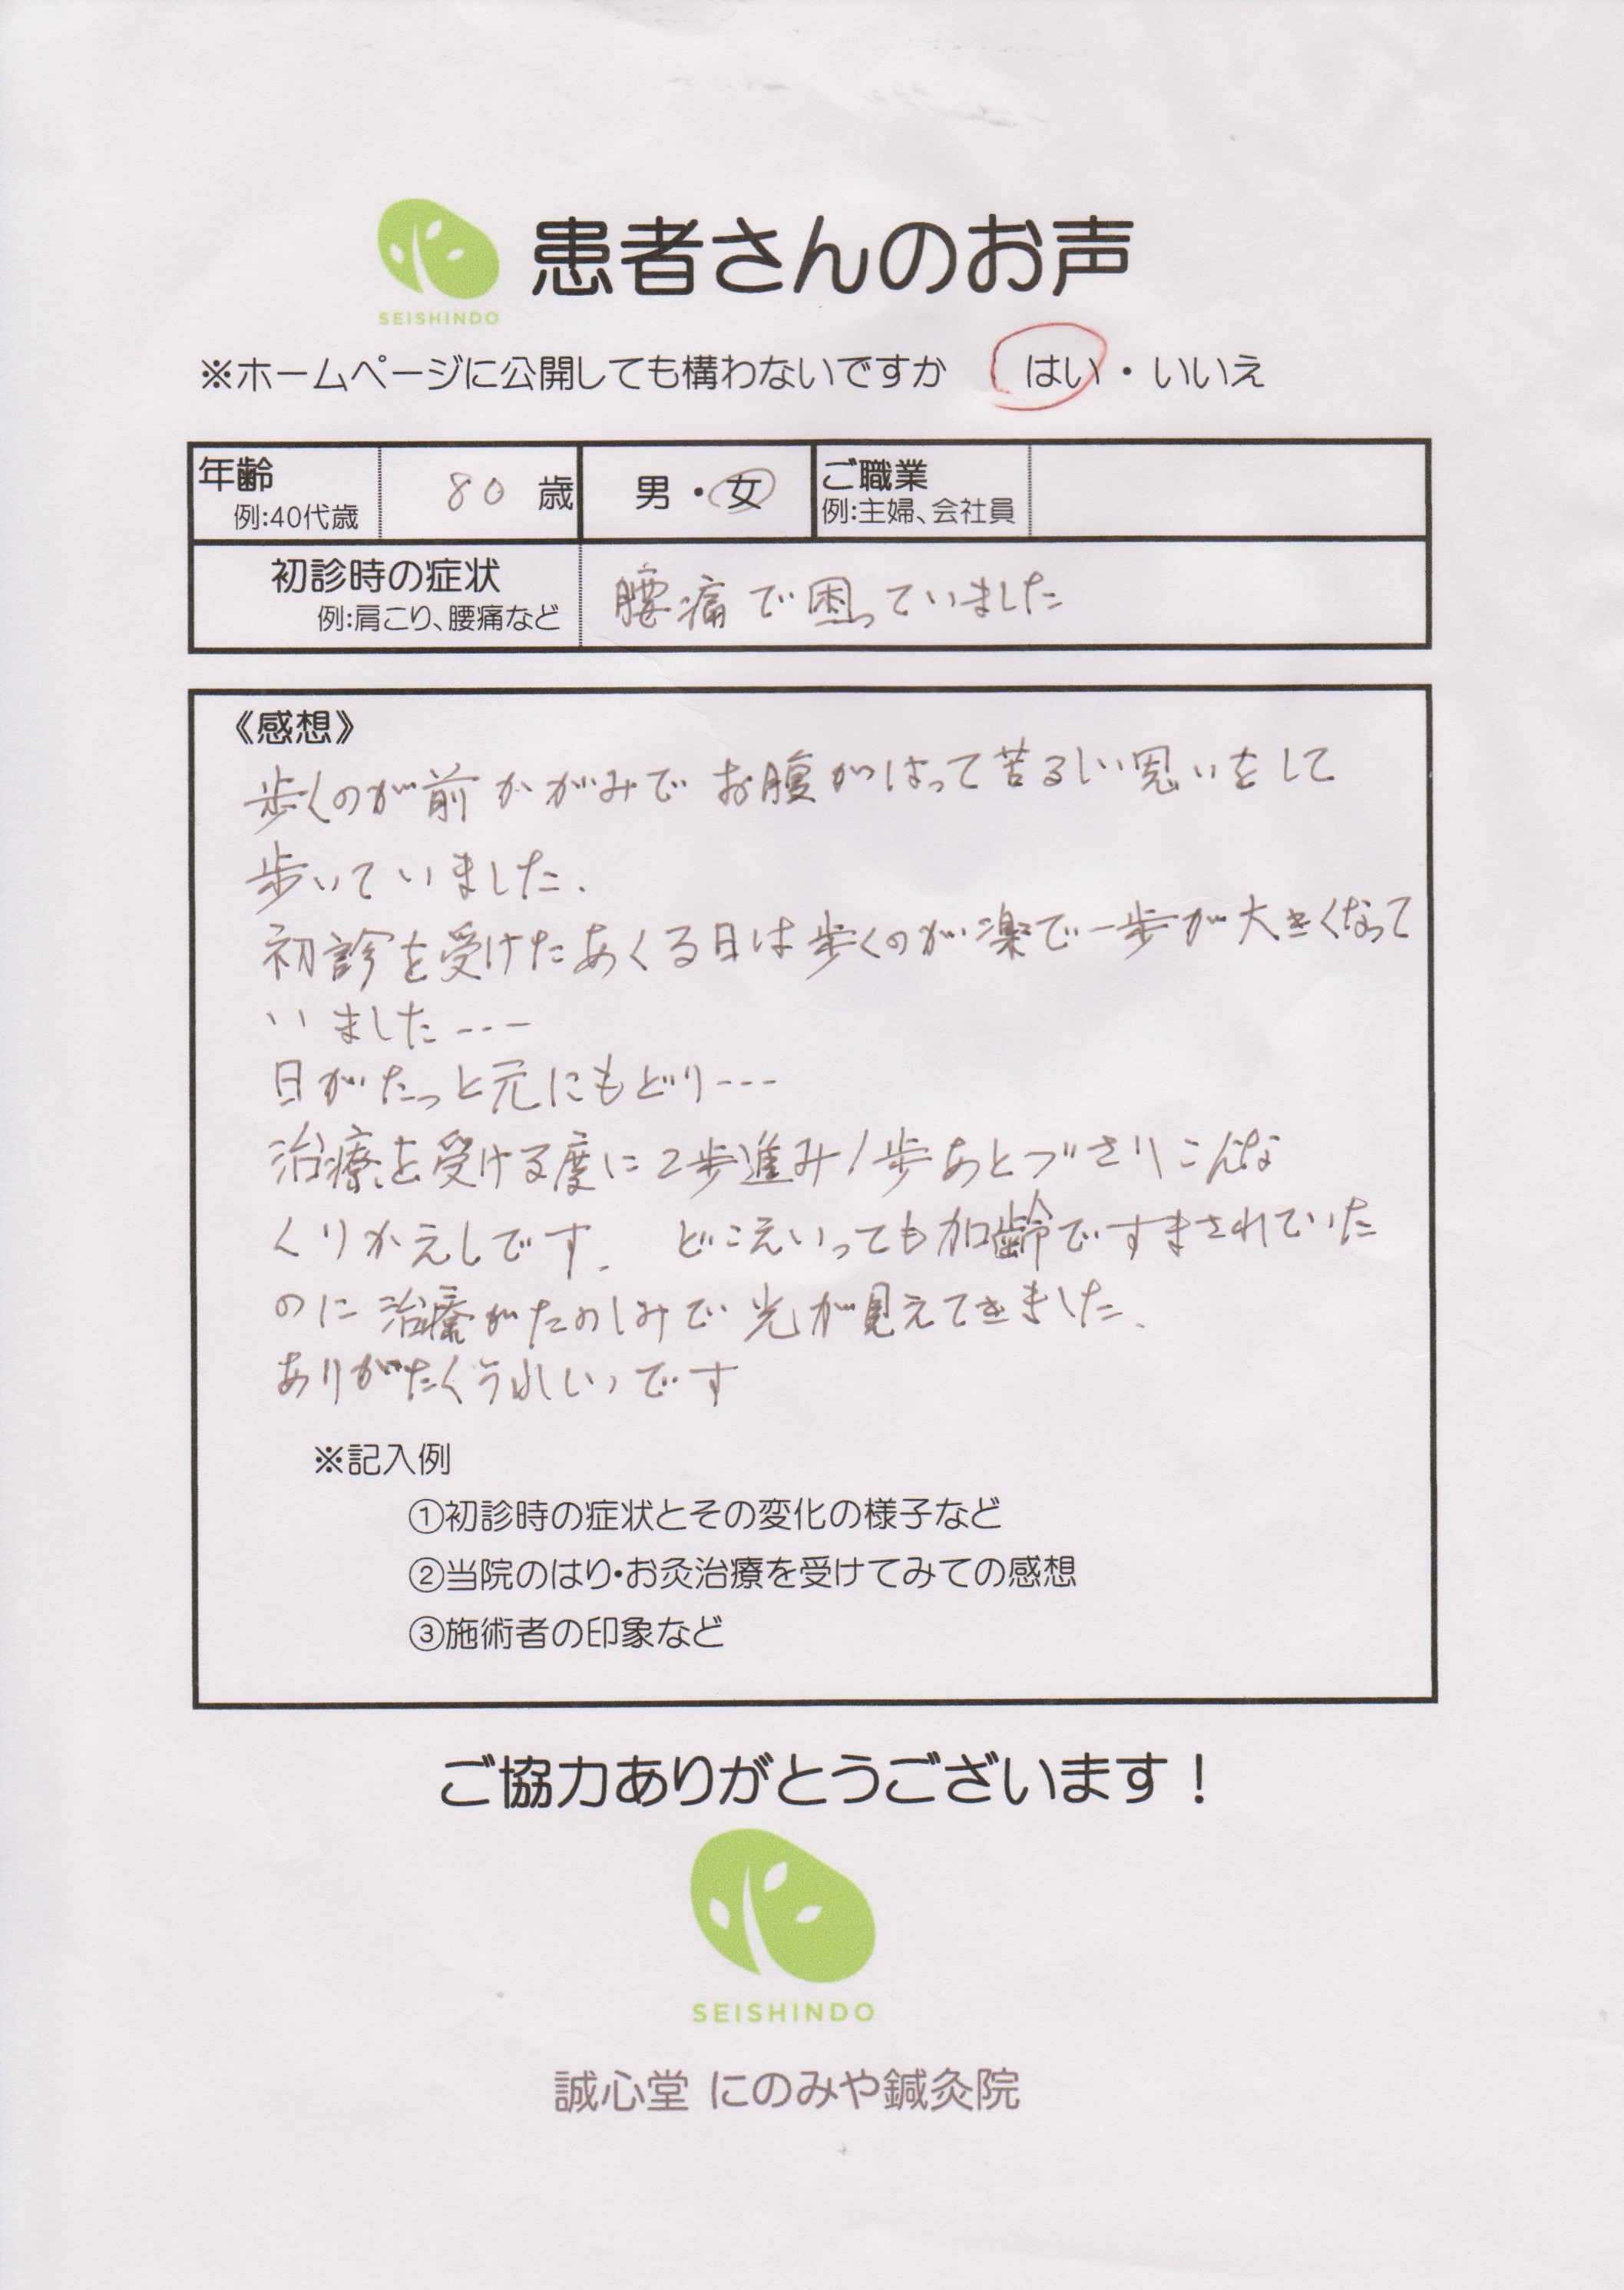 患者さんのお声
SEISHINDO
※ホームページに公開しても構わないですか はい・いいえ
年齢 80 歳 男・女 ご職業
例:40代歳 例:主婦、会社員
初診時の症状 腰痛で困っていました
例:肩こり、腰痛など
《感想》
歩くのが前かがみでお腹がはって苦るしい思いをして
歩いていました.
初診を受けたあくる日は歩くのが楽で一歩が大きくなって
いました---
日がたっと元にもどり---
治療を受ける度に2歩進み1歩あとづさりこんな
くりかえしです. どこえいっても加齢ですまされていた
のに治療がたのしみで光が見えてきました.
ありがたくうれしいです
※記入例
①初診時の症状とその変化の様子など
②当院のはり・お灸治療を受けてみての感想
③施術者の印象など
ご協力ありがとうございます！
SEISHINDO
誠心堂 にのみや鍼灸院